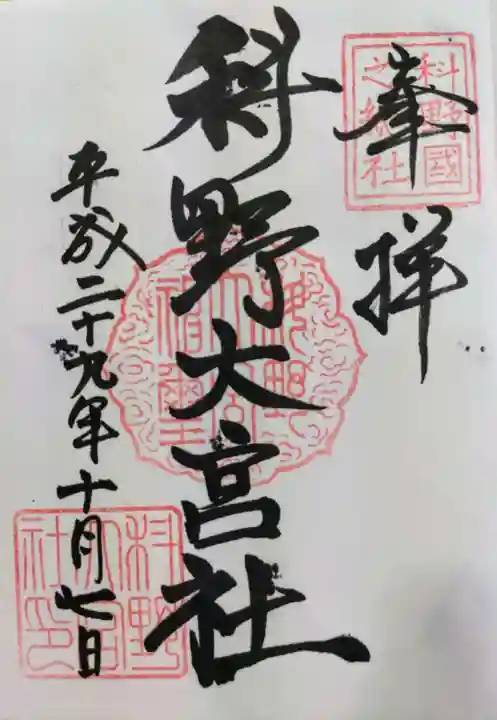 奉拝
科野國之総社
科野大宮社
平成二十九年十月七日
科野大宮社印